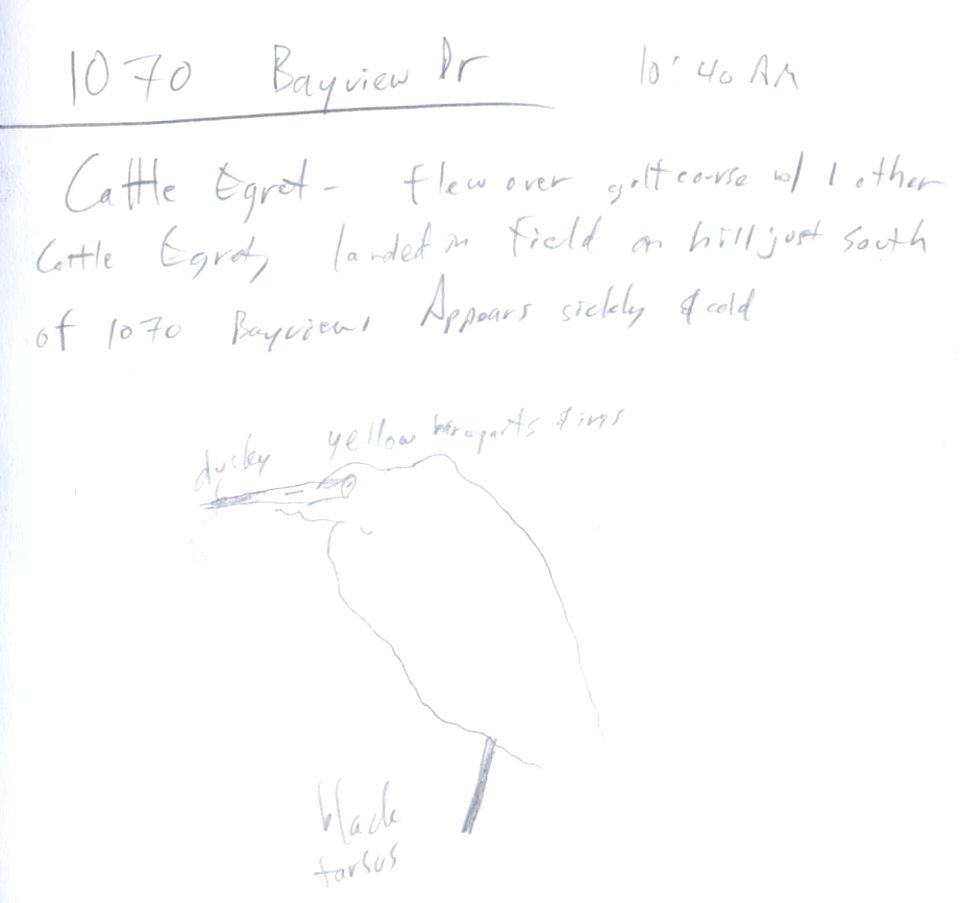 1070 Bayview Dr 10:40 AM
Cattle Egret - flew over golf course w/ 1 other
Cattle Egret, landed in field on hill just south
of 1070 Bayview. Appears sickly & cold
dusky yellow bareparts & iris
black
tarsus